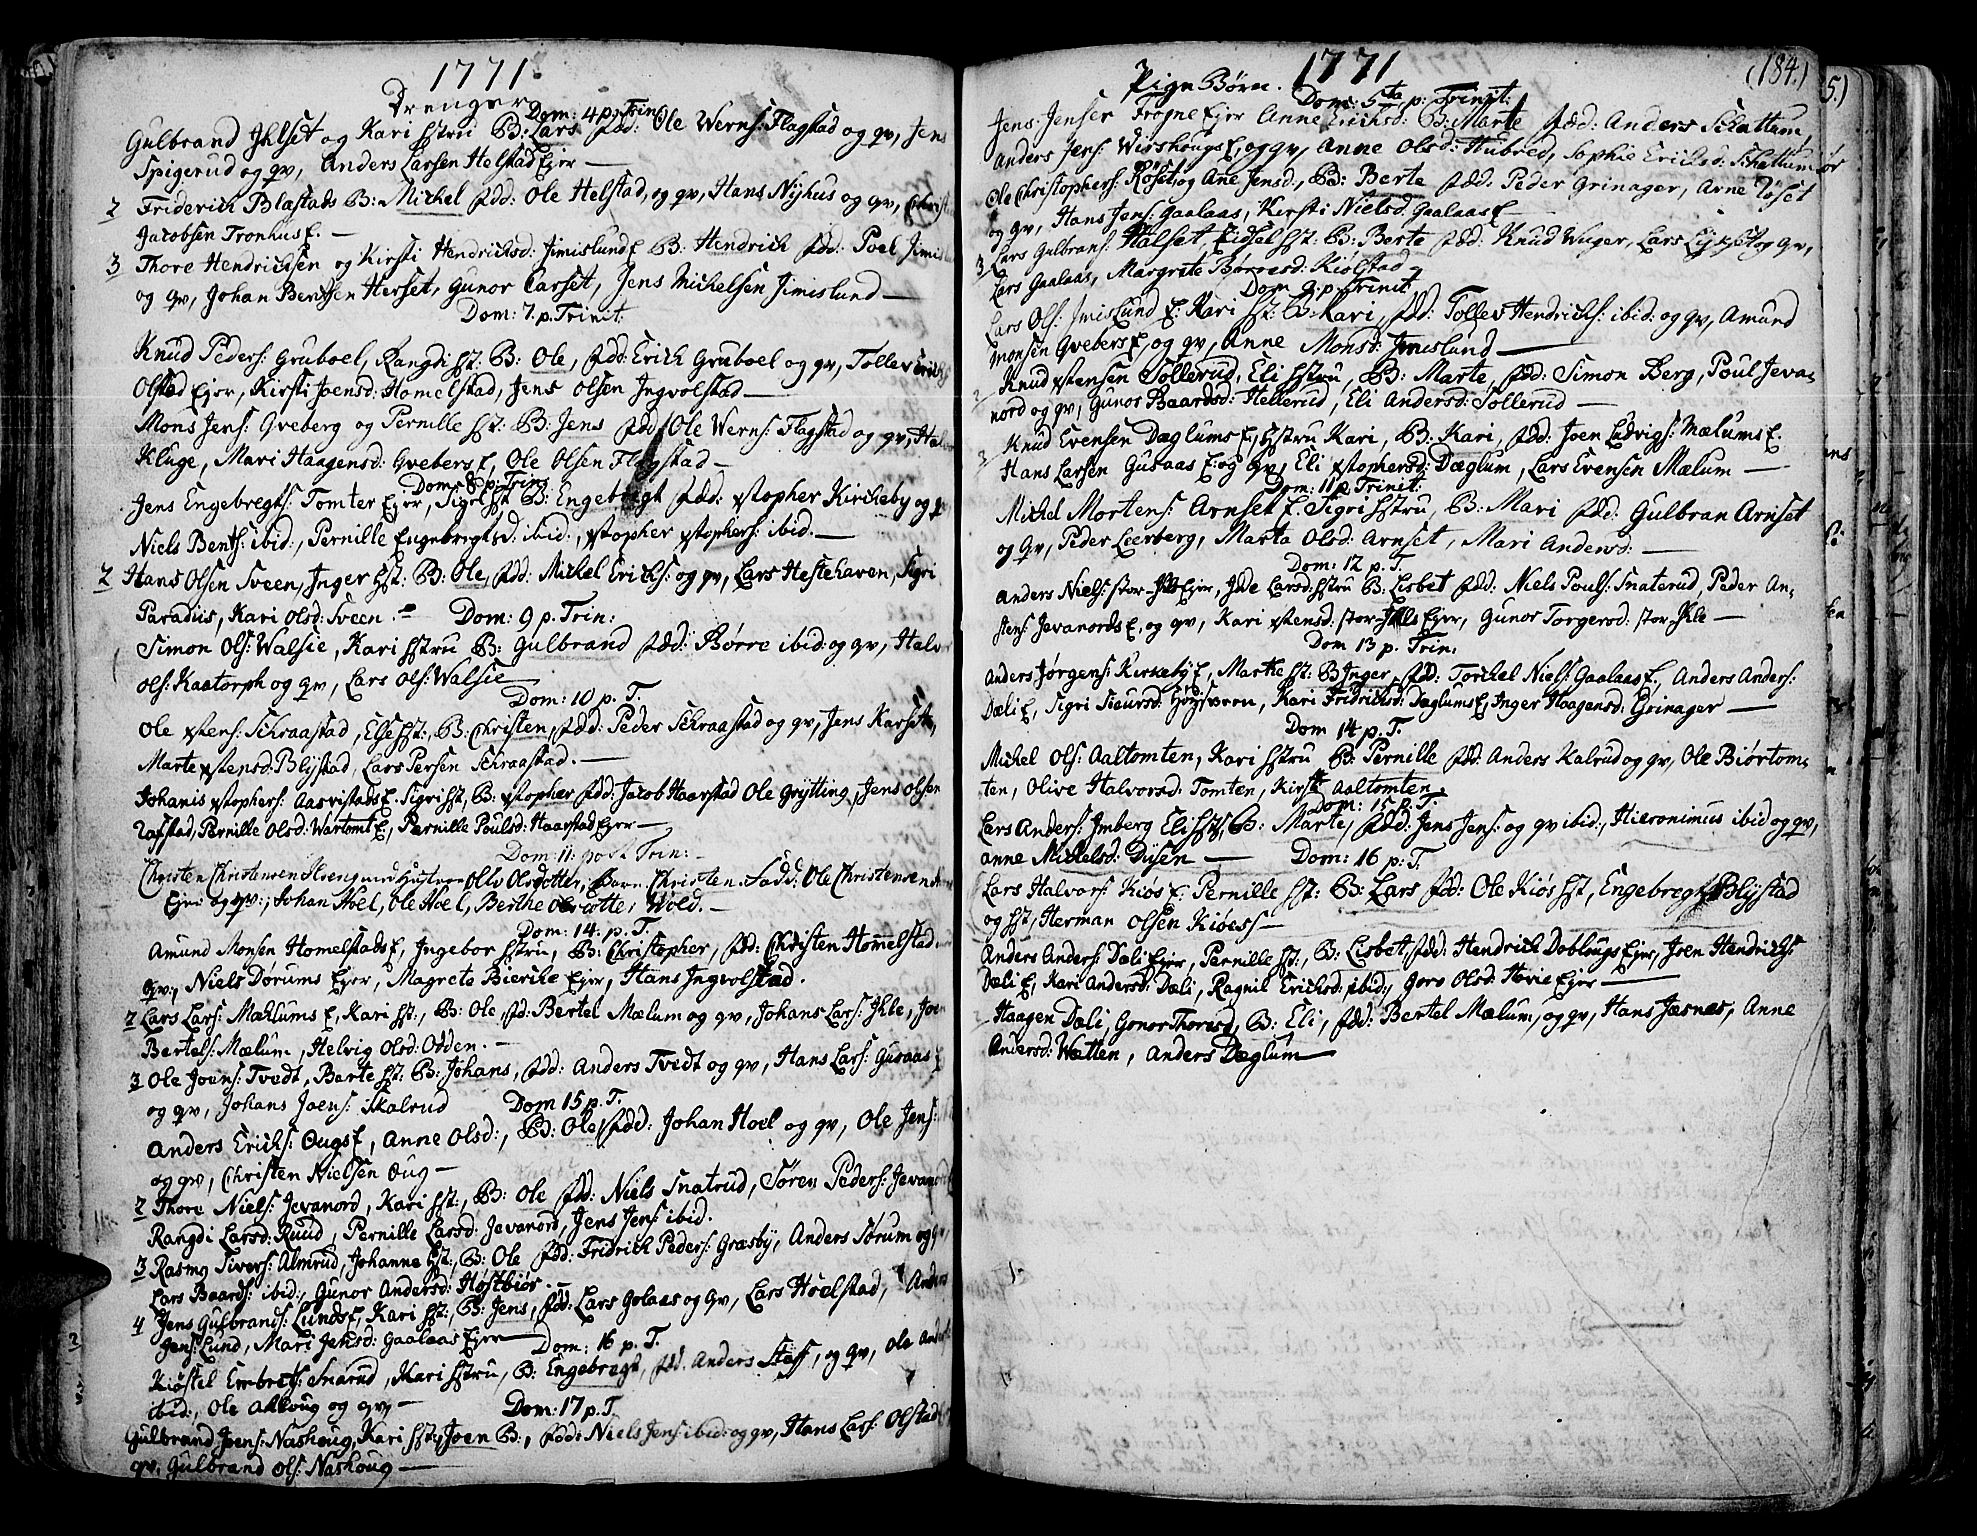 1771.
Drenger
Dom: 4 p: Trin:
Gulbrand Ihlset og Kari Hstru B: Lars Fdd: Ole Werns: Flagstad og qv, Jens
Spigerud og qv, Anders Larsen Helstad Ejer —
2 Friderich Blæstads B: Michel Fdd: Ole Helstad, og qv, Hans Nijhus og qv,
Jacobsen Tronhus E. —
3 Thore Hendrichsen og Kirsti Hendrichsd: Jimislund E B: Hendrich Fdd: Poel
og qv, Johan Bentsen Herset, Gunor Carset, Jens Michelsen Jimislund —
Dom: 7. p. Trinit:
Knud Peders: Gruboel, Rangdi Hst: B: Ole, Fdd: Erich Gruboel og qv, Tollev
Olstad Ejer, Kirsti Joensd: Homelstad, Jens Olsen Ingvolstad —
Mons Jens: Gveberg og Pernille Hst: B: Jens Fdd: Ole Werns: Flagstad og qv,
Kluge, Mari Haagensd: Gvebers E, Ole Olsen Flagstad —
Dom: 8 p: Trin:
Jens Engebregts: Tomter Ejer, Sigri Hst B: Engebregt Fdd: Xstopher Kircheby og q
Niels Bents: ibid:, Pernille Engebregtsd: ibid:, Xstopher Xstophers: ibid: —
2 Hans Olsen Sveen, Inger Hst: B: Ole, Fdd: Michel Erichs: og qv, Lars Hestehaven, Sigri
Paradiis, Kari Olsd: Sveen. — Dom: 9 p. Trin:
Simon Ols: Walsie, Kari Hstru B: Gulbrand Fdd: Børre ibid: og qv, Halv
Ols: Kaatorph og qv, Lars Ols: Walsie
Dom: 10 p. T.
Ole Xstens: Schraastad, Else Hst:, B: Christen, Fdd: Peder Schraastad og qv, Jens Karset,
Marte Xstensd: Blystad, Lars Persen Schraastad. —
Johanis Xstophers: Aarvistads E. Sigri Hst, B: Xstopher Fdd: Jacob Haarstad Ole Grytting, Jens Olsen
Tafstad, Pernille Olsd: Wartomt E, Pernille Poulsd: Haarstad Ejer —
Dom: 11: post Trin: —
Christen Christensen Hustrue Olsdotter, Barn: Christen. Fadd: Ole Christensen
Ejer og qv:, Johan Hoel, Ole Hoel, Berthe Olsdotter Wold. —
Dom: 14: p. T.
Amund Monsen Homelstads E, Ingebor Hstru, B: Christopher, Fdd: Christen Homelstad
qv:, Niels Dorums Ejer, Magrete Bierche Ejer, Hans Ingvolstad.
2 Lars Lars: Mælums E, Kari Hst:, B: Ole, Fd: Bertel Mælum og qv, Johans Lars: Ihle, Joe
Bertels: Mælum, Helvig Olsd: Odden. —
3 Ole Joens: Tvedt, Berte Hst: B: Johans, Fdd: Anders Tvedt og qv, Hans Lars: Gusaas E
og qv, Johans Joens: Skalrud Dom 15 p. T.
Anders Erichs: Ougs E, Anne Olsd:, B: Ole Fdd: Johan Hoel og qv, Ole Jens:
og qv, Christen Nielsen Oug —
2 Thore Niels: Jevanord, Kari Hst:, B: Ole Fdd: Niels Snatrud, Søren Peders: Jevan
Rangdi Larsd: Ruud, Pernille Larsd: Jevanord, Jens Jens: ibid.
3 Rasmg Sivers: Almrud, Johanne Hst:, B: Ole Fdd: Fridrich Peders: Græsby, Anders Sørum og q
Lars Baards: ibid:, Gunor Andersd: Høstbiør. —
4 Jens Gulbrands: Lunds E, Kari Hst:, B: Jens, Fdd: Lars Golaas og qv, Lars Hoelstad, Anders
Jens: Lund, Mari Jensd: Gaalaas Ejer — Dom: 16 p. T.
Kiøstel Embrets: Snarud, Kari Hstru, B: Engebregt, Fdd. Anders Steff, og qv, Ole
ibid:, Ole Akkoug og qv, — Dom: 17 p. T.
Gulbrand Joens: Nashoug, Kari Hst:, Joen B:, Fdd: Niels Jens: ibid: og qv, Hans Lars: Olstad
qv, Gulbrand Ols: Nashoug —
1771 (184.)
Pige Børn.
Dom: 5ta p: Trinit:
Jens Jenser Frogne Ejer Anne Erichsd: B: Marte Fdd: Anders Schattum,
Anders Jens: Wirshougs E, og qv, Anne Olsd: Hubred, Sophie Ericksd: Schattum
Ole Christophers: Røset, og Ane Jensd:, B: Berte Fdd: Peder Grinager, Arne
og qv, Hans Jens: Gaalaas, Kersti Nielsd: Gaalaas E —
3 Lars Gulbrans: Halset, Eidsel Hst: B: Berte Fdd: Knud Wuger, Lars og qv,
Lars Gaalaas, Margrete Børresd: Kiølstad —
Dom 9. p. Trinit
Lars Ols: Imislund E: Kari Hst: B: Kari, Fdd: Tollev Hendrichs: ibid: og qv, Amund
Monsen Gvebers E, og qv, Anne Monsd: Imislund —
2 Knud Xstensen Sollerud, Eli Hstru, B: Marte, Fdd: Simon Berg, Poul Jeva=
nord og qv, Gunor Baardsd: Hellerud, Eli Andersd: Sollerud —
3 Knud Evensen Dæglums E, Hstru Kari, B: Kari, Fdd: Joen Ludvigs: Mælums E.
Hans Larsen Gusaas E: og qv, Eli Xstophersd: Dæglum, Lars Evensen Mælum —
Dom: 11 p. Trinit:
Michel Mortens: Arnset E. Sigri Hstru, B: Mari Fdd: Gulbran Arnset
og qv, Peder Leerberg, Marta Olsd: Arnset, Mari Andersd: —
Dom: 12 p. T.
Anders Niels: stor-Ihls Ejer, Ide Larsd: Hstru B: Lisbet Fdd: Niels Pouls: Snaterud, Peder An=
ders: Jevanords E, og qv, Kari Xstensd: stor-Ihls Ejer, Gunor Torgersd: stor-Ihle —
Dom 13 p. Trin:
Anders Jørgens: Kirkeby E, Marthe Hst: B: Inger, Fdd: Torchel Niels: Gaalaas E, Anders Anders:
Dæli E, Sigri Siversd: Høysveen, Kari Fridrichsd: Dæglums E, Inger Haagensd: Grinager —
Dom 14 p. T.
Michel Ols: Aaltomten, Kari Hstru B: Pernille Fdd: Anders Kalrud og qv, Ole Biørtom=
ten, Olive Halvorsd: Tomten, Kirsti Aaltomten.
Dom: 15 p. T.
Lars Anders: Imberg Eli Hst, B: Marte, Fdd: Jens Jens: og qv ibid:, Hieronimus ibid og qv,
Anne Michelsd: Dysen — Dom: 16 p: T.
Lars Halvors: Kiøs E: Pernille Hst: B: Lars Fdd: Ole Kiøs Hst, Engebregt Blystad
og Hst, Herman Olsen Kiøess —
Anders Anders: Dæli Ejer, Pernille Hst:, B: Lisbet, Fdd: Hendrich Doblougs Ejer, Joen Hendrichs:
Dæli E, Kari Andersd: Dæli, Ragnil Erichsd: ibid:, Goro Olsd: Hovie Ejer —
Haagen Dæli, Gonor Thoresd, B: Eli, Fdd: Bertel Mælum, og qv, Hans Jæsnæs, Anne
Andersd: Wætten, Anders Dæglum —